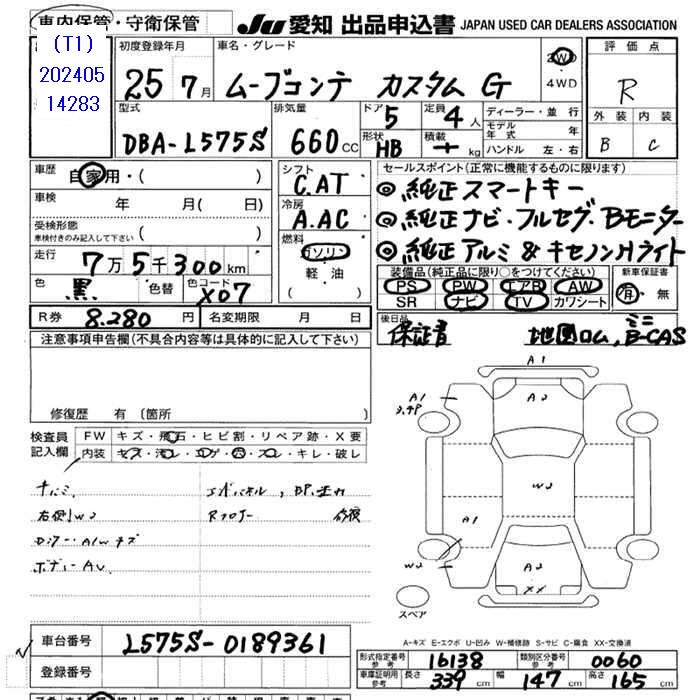 車内保管・守衛保管 JU 愛知 出品申込書 JAPAN USED CAR DEALERS ASSOCIATION
(T1)
202405
14283
初度登録年月 車名・グレード 評価点
25 7月 ムーブコンテ カスタム G 2WD 4WD R
型式 排気量 ドア 定員 ディーラー・並行 外装 内装
DBA-L575S 660cc 5 4人 モデル年式 年 B C
形状 HB 積載 kg ハンドル 左・右
車歴 自家用・( )
シフト C.AT
セールスポイント(正常に機能するものに限ります)
◎純正スマートキー
車検 年 月( 日)
冷房 A.AC
◎純正ナビ・フルセグ・Bモニター
受検形態
車検付きのみ記入して下さい ( )
燃料 ガソリン
軽・油
( )
◎純正アルミ & キセノンHライト
走行 7万5千300km
装備品(純正品に限り○をつけてください) 新車保証書
PS PW エアB AW 有・無
SR ナビ TV カワシート
色 黒 色替 色コード X07
R券 8.280円 名変期限 月 日
後日品
保証書 地図ロム, ミニB-CAS
注意事項申告欄(不具合内容等は具体的に記入して下さい)
修復歴 有(箇所
検査員記入欄 FW キズ・飛石・ヒビ割・リペア跡・X要
内装 キズ・汚レ・コゲ・穴・スレ・キレ・破レ
右側W2
A1
A2
A1
W2
A1
W2
A2
XX
スペア
A-キズ E-エクボ U-凹み W-補修跡 S-サビ C-腐食 XX-交換済
車台番号 L575S-0189361
登録番号
形式指定番号 参考 16138 類別区分番号 参考 0060
車庫証明用 参考 長さ 339cm 幅 147cm 高さ 165cm